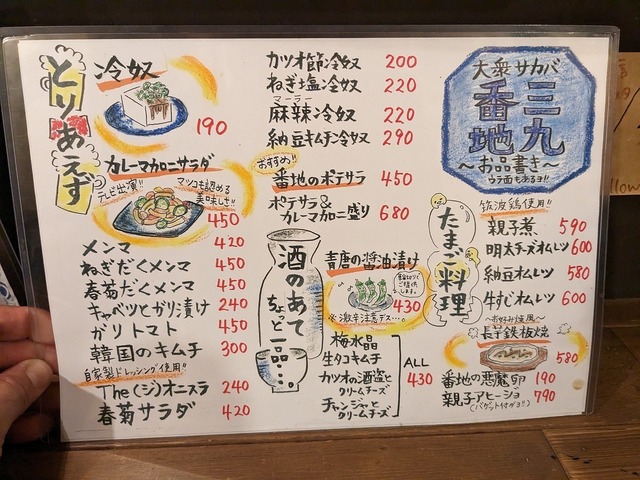 とりあえず
冷奴
190
カレーマカロニサラダ
テレビ出演!!
マツコも認める
美味しさ!!
450
メンマ 420
ねぎだくメンマ 450
春菊だくメンマ 450
キャベツとガリ漬け 240
ガリトマト 450
韓国のキムチ 300
自家製ドレッシング使用!!
The(ジ)オニスラ 240
春菊サラダ 420
カツオ節冷奴 200
ねぎ塩冷奴 220
マーラー
麻辣冷奴 220
納豆キムチ冷奴 290
おすすめ!!
番地のポテサラ 450
ポテサラ&
カレーマカロニ盛り 680
酒のあて
ちょっと一品…
青唐の醤油漬け
430
※激辛注意デス…
梅水晶
生タコキムチ
カツオの酒盗と
クリームチーズ
チャンジャと
クリームチーズ
ALL
430
大衆サカバ
三九
番地
〜お品書き〜
ウラ面もあるヨ!!
たまご料理
筑波鶏使用!!
親子煮 590
明太チーズオムレツ 600
納豆オムレツ 580
牛すじオムレツ 600
〜お好み焼風〜
長芋鉄板焼
580
番地の悪魔卵 190
親子アヒージョ 790
(バゲット付ヨ!!)